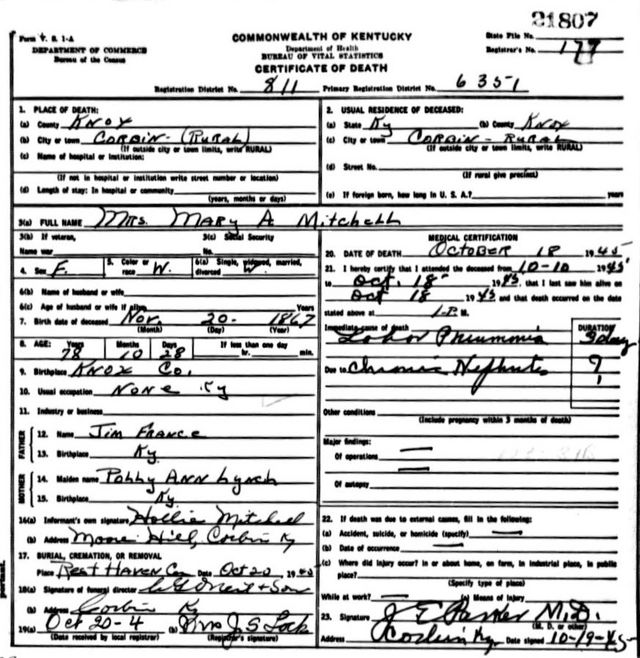 21807
Form V. S. 1-A
DEPARTMENT OF COMMERCE
Bureau of the Census
COMMONWEALTH OF KENTUCKY
Department of Health
BUREAU OF VITAL STATISTICS
CERTIFICATE OF DEATH
State File No.
Registrar's No. 177
Registration District No. 811 Primary Registration District No. 6351
1. PLACE OF DEATH:
(a) County Knox
(b) City or town Corbin - (Rural)
(If outside city or town limits, write RURAL)
(c) Name of hospital or institution:
(If not in hospital or institution write street number or location)
(d) Length of stay: In hospital or community
(years, months or days)
2. USUAL RESIDENCE OF DECEASED:
(a) State Ky (b) County Knox
(c) City or town Corbin - Rural
(If outside city or town limits, write RURAL)
(d) Street No.
(If rural give precinct)
(e) If foreign born, how long in U. S. A.? years
3(a) FULL NAME Mrs. Mary A Mitchell
3(b) If veteran, Name war
3(c) Social Security No.
4. Sex F. 5. Color or race W. 6(a) Single, widowed, married, divorced W.
6(b) Name of husband or wife
6(c) Age of husband or wife if alive Years
7. Birth date of deceased Nov. 20 - 1867
(Month) (Day) (Year)
8. AGE: Years Months Days If less than one day
78 10 28 hr. min.
9. Birthplace Knox Co.
10. Usual occupation None Ky
11. Industry or business
FATHER
12. Name Jim France
13. Birthplace Ky.
MOTHER
14. Maiden name Polly Ann Lynch
15. Birthplace Ky.
16(a) Informant's own signature Hollie Mitchell
(b) Address Moore Hill, Corbin Ky
17. BURIAL, CREMATION, OR REMOVAL
Place Rest Haven Date Oct 20 1945
18(a) Signature of funeral director
(b) Address Corbin Ky
19(a) Oct 20-4 (b) Mrs J S Lock
(Date received by local registrar) (Registrar's signature)
MEDICAL CERTIFICATION
20. DATE OF DEATH October 18 1945
21. I hereby certify that I attended the deceased from 10-10 1945
to Oct. 18 1945, that I last saw him alive on
Oct 18 1945 and that death occurred on the date
stated above at 1-P M.
Immediate cause of death Lobar Pneumonia
DURATION
9 day
Due to Chronic Nephritis ?
Other conditions
(Include pregnancy within 3 months of death)
Major findings:
Of operations
Of autopsy
22. If death was due to external causes, fill in the following:
(a) Accident, suicide, or homicide (specify)
(b) Date of occurrence
(c) Where did injury occur? In or about home, on farm, in industrial place, in public place?
(Specify type of place)
While at work? (e) Means of Injury
23. Signature J E Parker M.D.
(M. D. or other)
Address Corbin Ky. Date signed 10-19-45
portant.